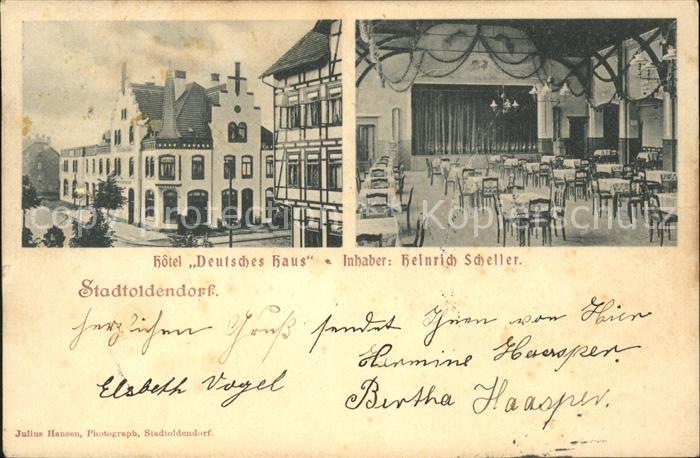 copyright protected
Hôtel „Deutsches Haus" • Inhaber: Heinrich Scheller.
Stadtoldendorf.
herzlichen Gruß sendet Ihnen von Hier
Hermine Haasper.
Elsbeth Vogel
Bertha Haasper.
Julius Hansen, Photograph, Stadtoldendorf.